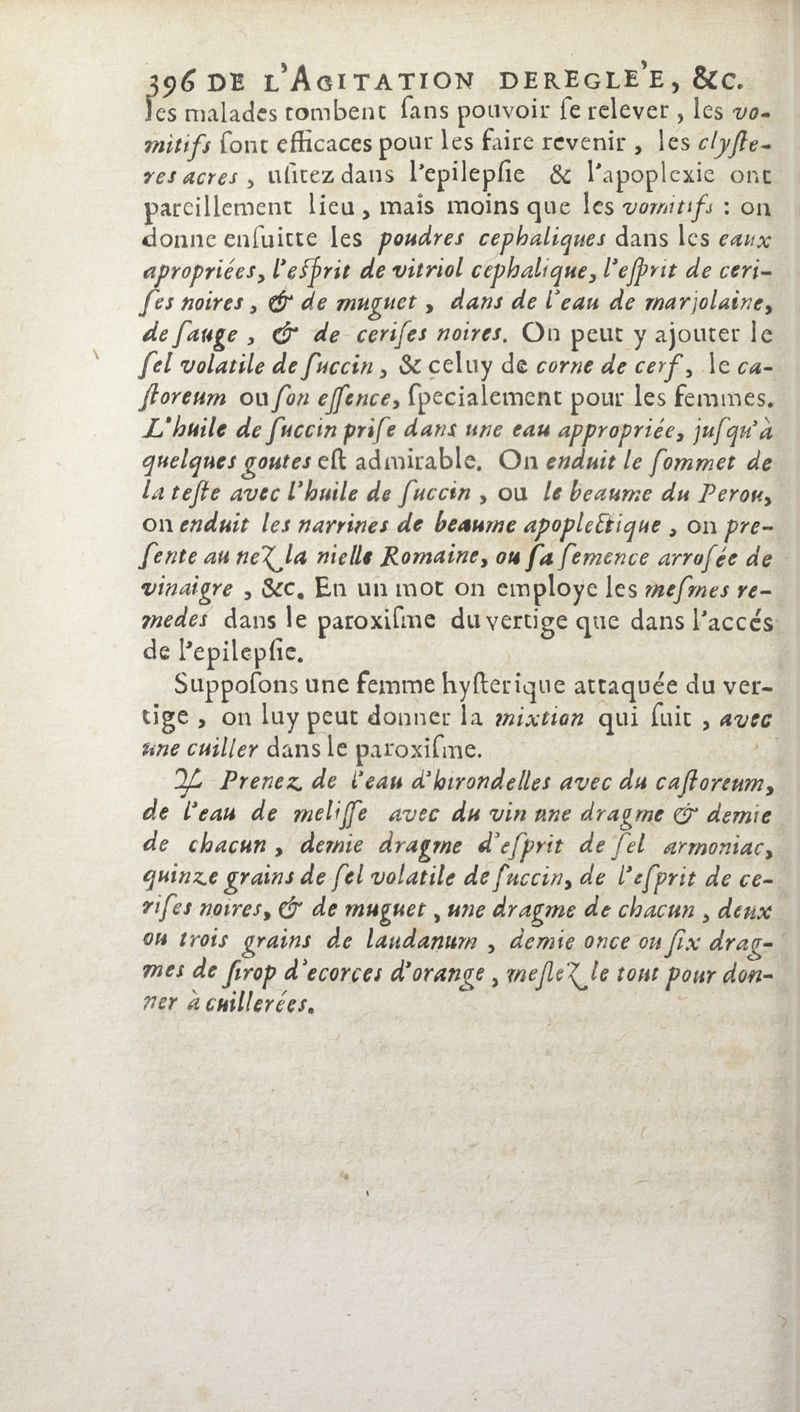 396 DE L'AGITATION DEREGLE'E, &c.
les malades tombent ſans pouvoir ſe relever, les vo-
mitifs ſont efficaces pour les faire revenir, les clyſte-
res acres, uſitez dans l'epilepſie & l'apoplexie ont
pareillement lieu, mais moins que les vomitifs : on
donne enſuitte les poudres cephaliques dans les eaux
apropriées, l'eſprit de vitriol cephalique, l'eſprit de ceri-
ſes noires, & de muguet, dans de l'eau de marjolaine,
de ſauge, & de ceriſes noires. On peut y ajouter le
ſel volatile de ſuccin, & celuy de corne de cerf, le ca-
ſtoreum ou ſon eſſence, ſpecialement pour les femmes.
L'huile de ſuccin priſe dans une eau appropriée, juſqu'à
quelques goutes eſt admirable. On enduit le ſommet de
la teſte avec l'huile de ſuccin, ou le beaume du Perou,
on enduit les narrines de beaume apoplectique, on pre-
ſente au nez la nielle Romaine, ou ſa ſemence arroſée de
vinaigre, &c. En un mot on employe les meſmes re-
medes dans le paroxiſme du vertige que dans l'accés
de l'epilepſie.
Suppoſons une femme hyſterique attaquée du ver-
tige, on luy peut donner la mixtion qui ſuit, avec
une cuiller dans le paroxiſme.
♃ Prenez de l'eau d'hirondelles avec du caſtoreum,
de l'eau de meliſſe avec du vin une dragme & demie
de chacun, demie dragme d'eſprit de ſel armoniac,
quinze grains de ſel volatile de ſuccin, de l'eſprit de ce-
riſes noires, & de muguet, une dragme de chacun, deux
ou trois grains de laudanum, demie once ou ſix drag-
mes de ſirop d'ecorces d'orange, meſlez le tout pour don-
ner à cuillerées.